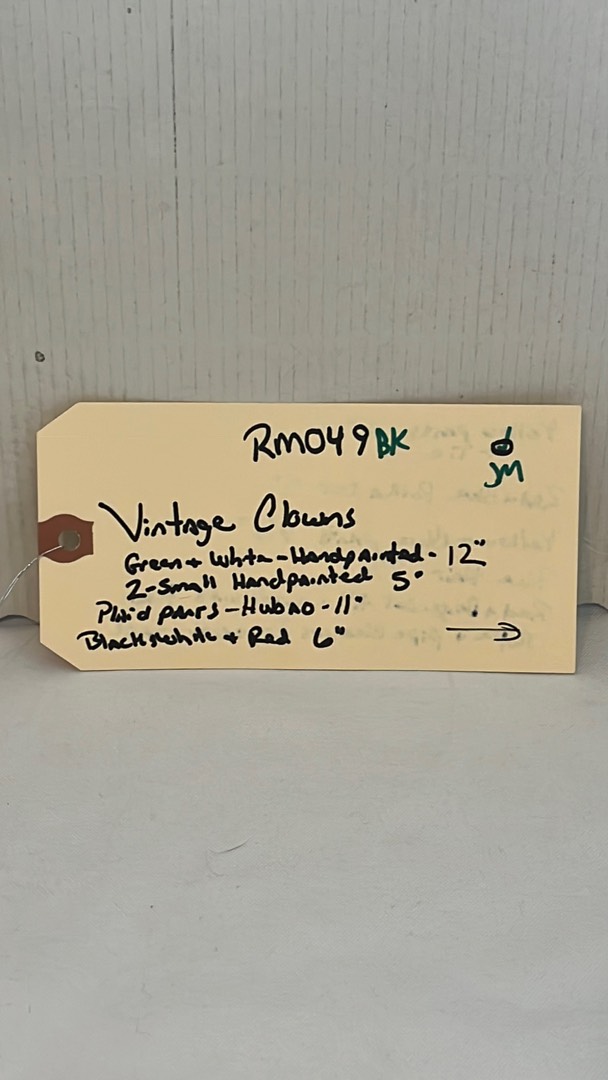 RM049 BK
JM
Vintage Clowns
Green + White - Handpainted - 12"
2 - Small Handpainted 5"
Plaid pants - Hubao - 11"
Black white + Red 6"